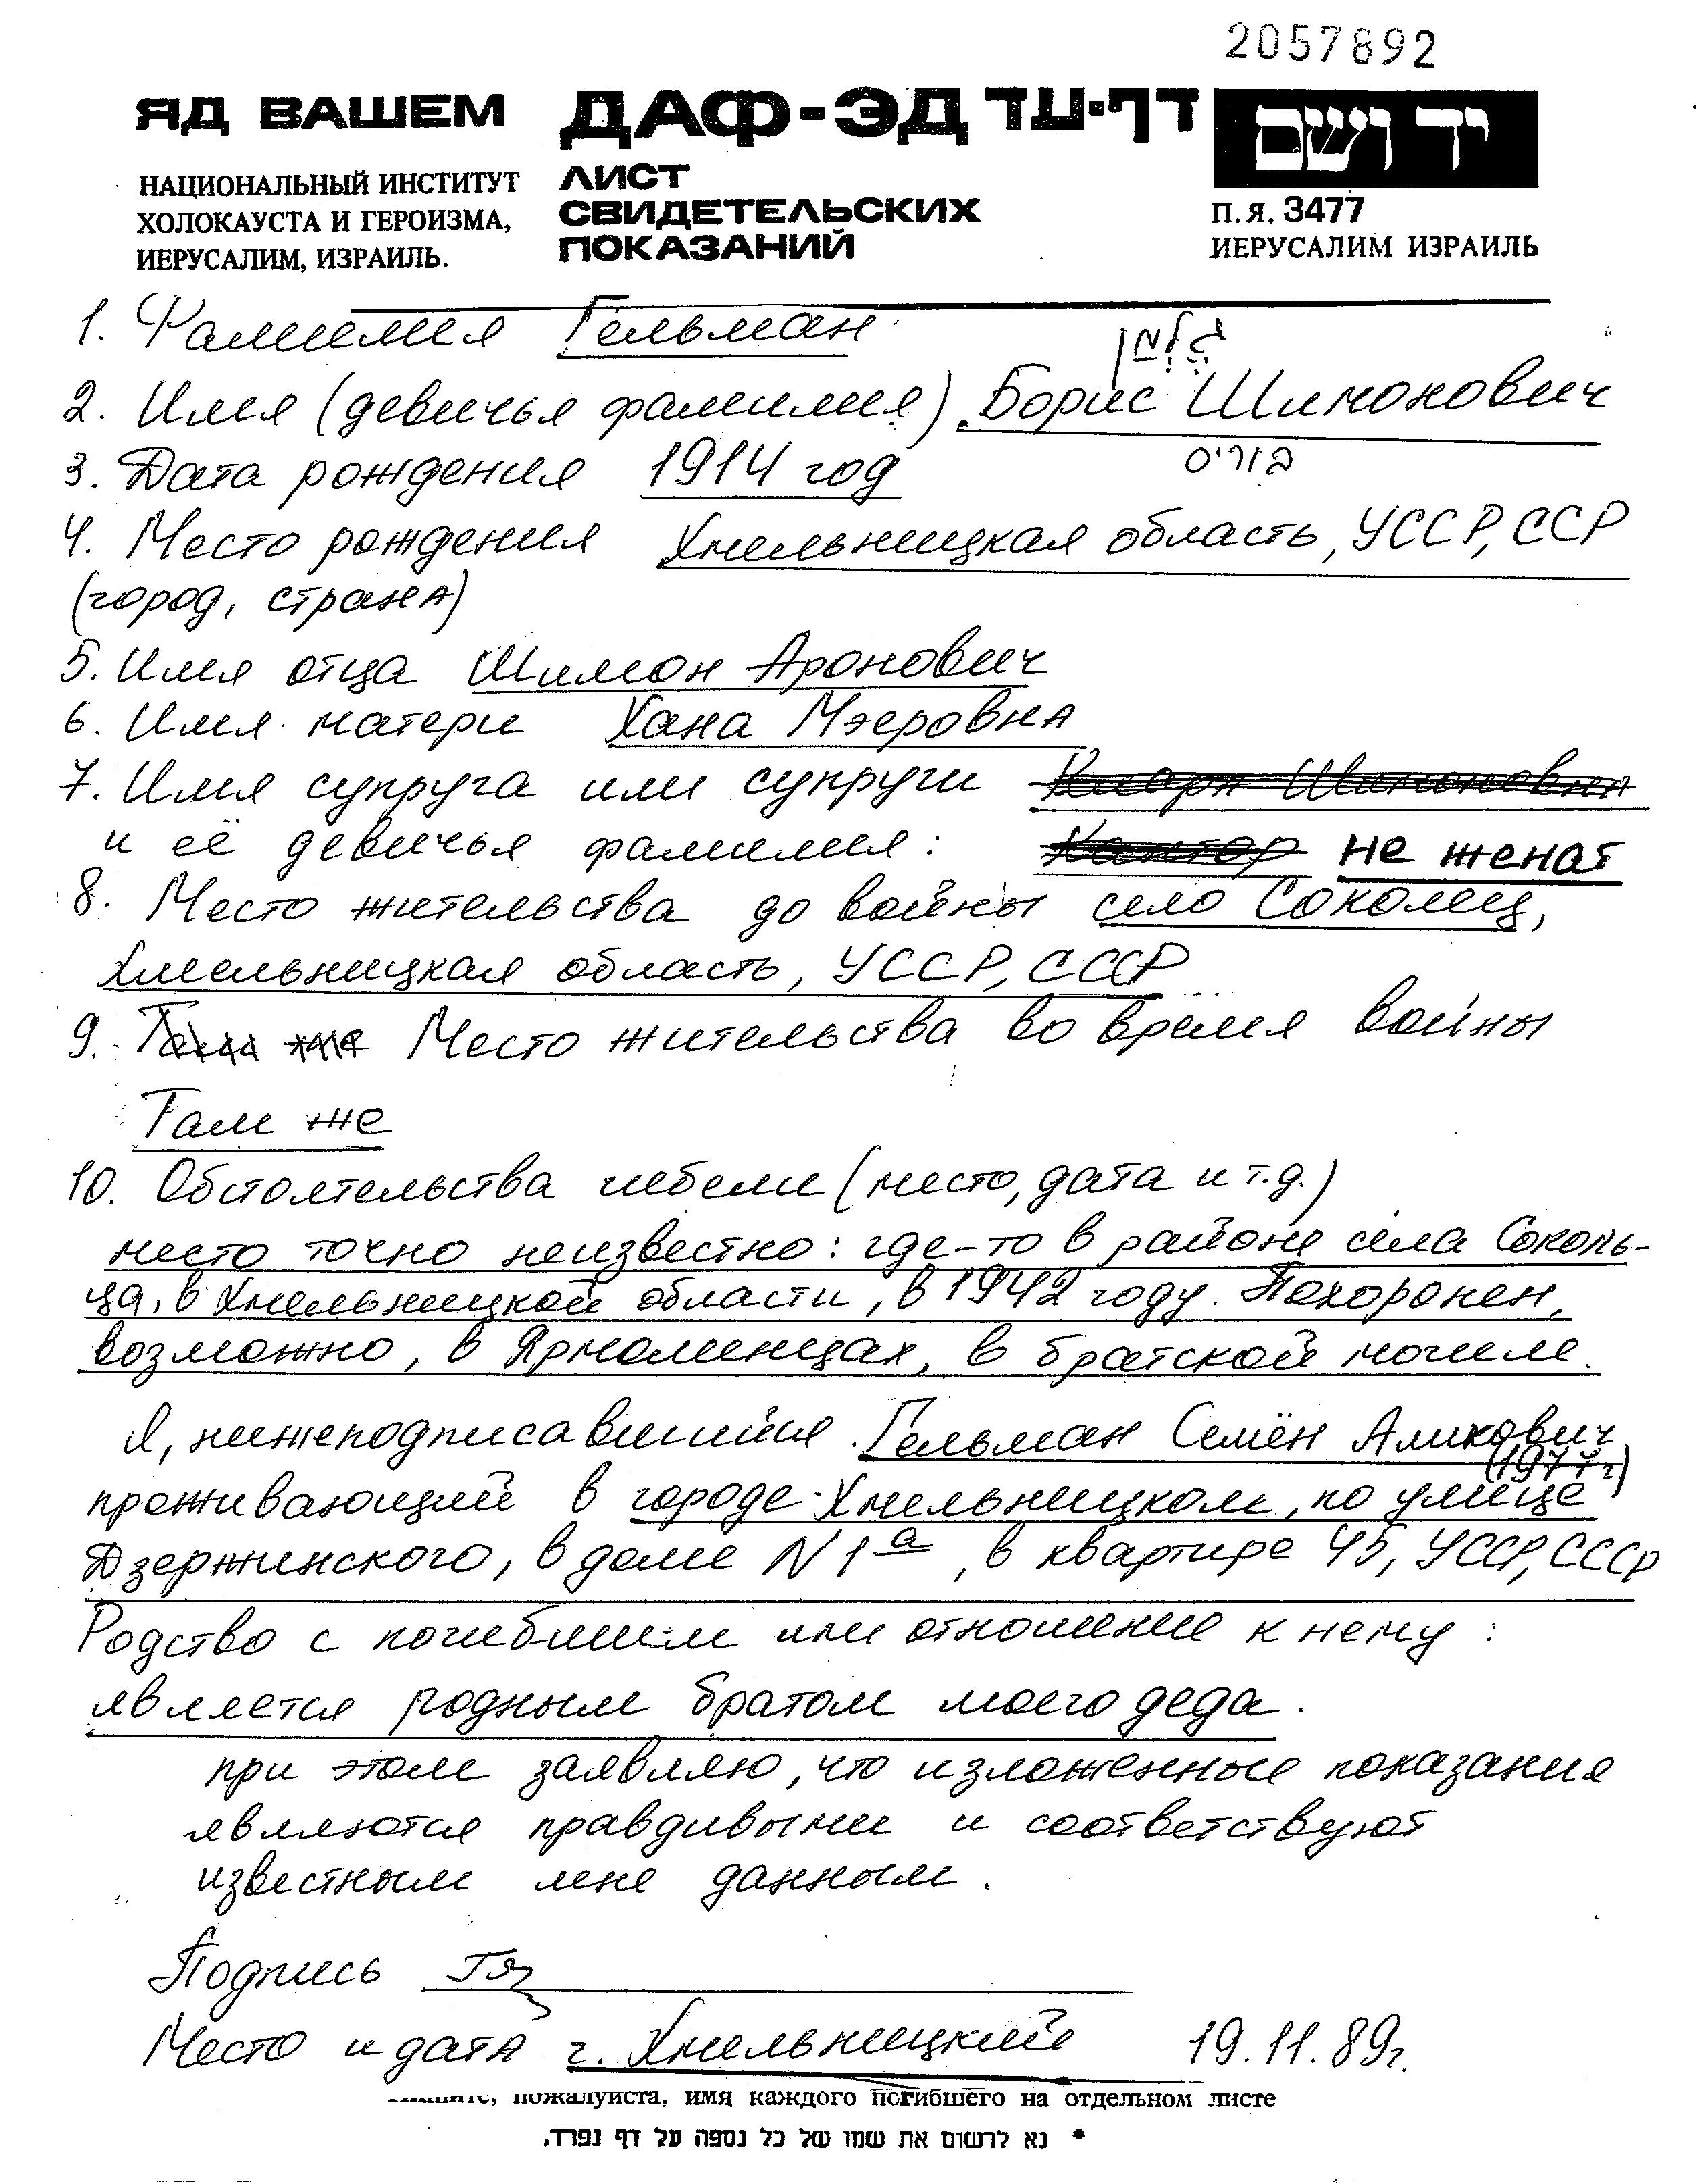 2057892
ЯД ВАШЕМ ДАФ-ЭД דף-עד יד ושם
НАЦИОНАЛЬНЫЙ ИНСТИТУТ
ХОЛОКАУСТА И ГЕРОИЗМА,
ИЕРУСАЛИМ, ИЗРАИЛЬ.
ЛИСТ
СВИДЕТЕЛЬСКИХ
ПОКАЗАНИЙ
П.Я. 3477
ИЕРУСАЛИМ ИЗРАИЛЬ
1. Фамилия Гельман
גלמן
2. Имя (девичья фамилия) Борис Шимонович
בוריס
3. Дата рождения 1914 год
4. Место рождения Хмельницкая область, УССР, ССР
(город, страна)
5. Имя отца Шимон Аронович
6. Имя матери Хана Мэеровна
7. Имя супруга или супруги Клара Шимоновна
и её девичья фамилия: Кантор не женат
8. Место жительства до войны село Соколец,
Хмельницкая область, УССР, СССР
9. Там же Место жительства во время войны
Там же
10. Обстоятельства гибели (место, дата и т.д.)
место точно неизвестно: где-то в районе села Соколь-
ца, в Хмельницкой области, в 1942 году. Похоронен,
возможно, в Ярмолинцах, в братской могиле.
Я, нижеподписавшийся Гельман Семён Аликович
(1977г)
проживающий в городе Хмельницком, по улице
Дзержинского, в доме N 1а, в квартире 45, УССР, СССР
Родство с погибшим или отношение к нему:
является родным братом моего деда.
при этом заявляю, что изложенные показания
являются правдивыми и соответствуют
известным мне данным.
Подпись
Место и дата г. Хмельницкий 19.11.89г.
пожалуйста, имя каждого погибшего на отдельном листе
* נא לרשום את שמו של כל נספה על דף נפרד.